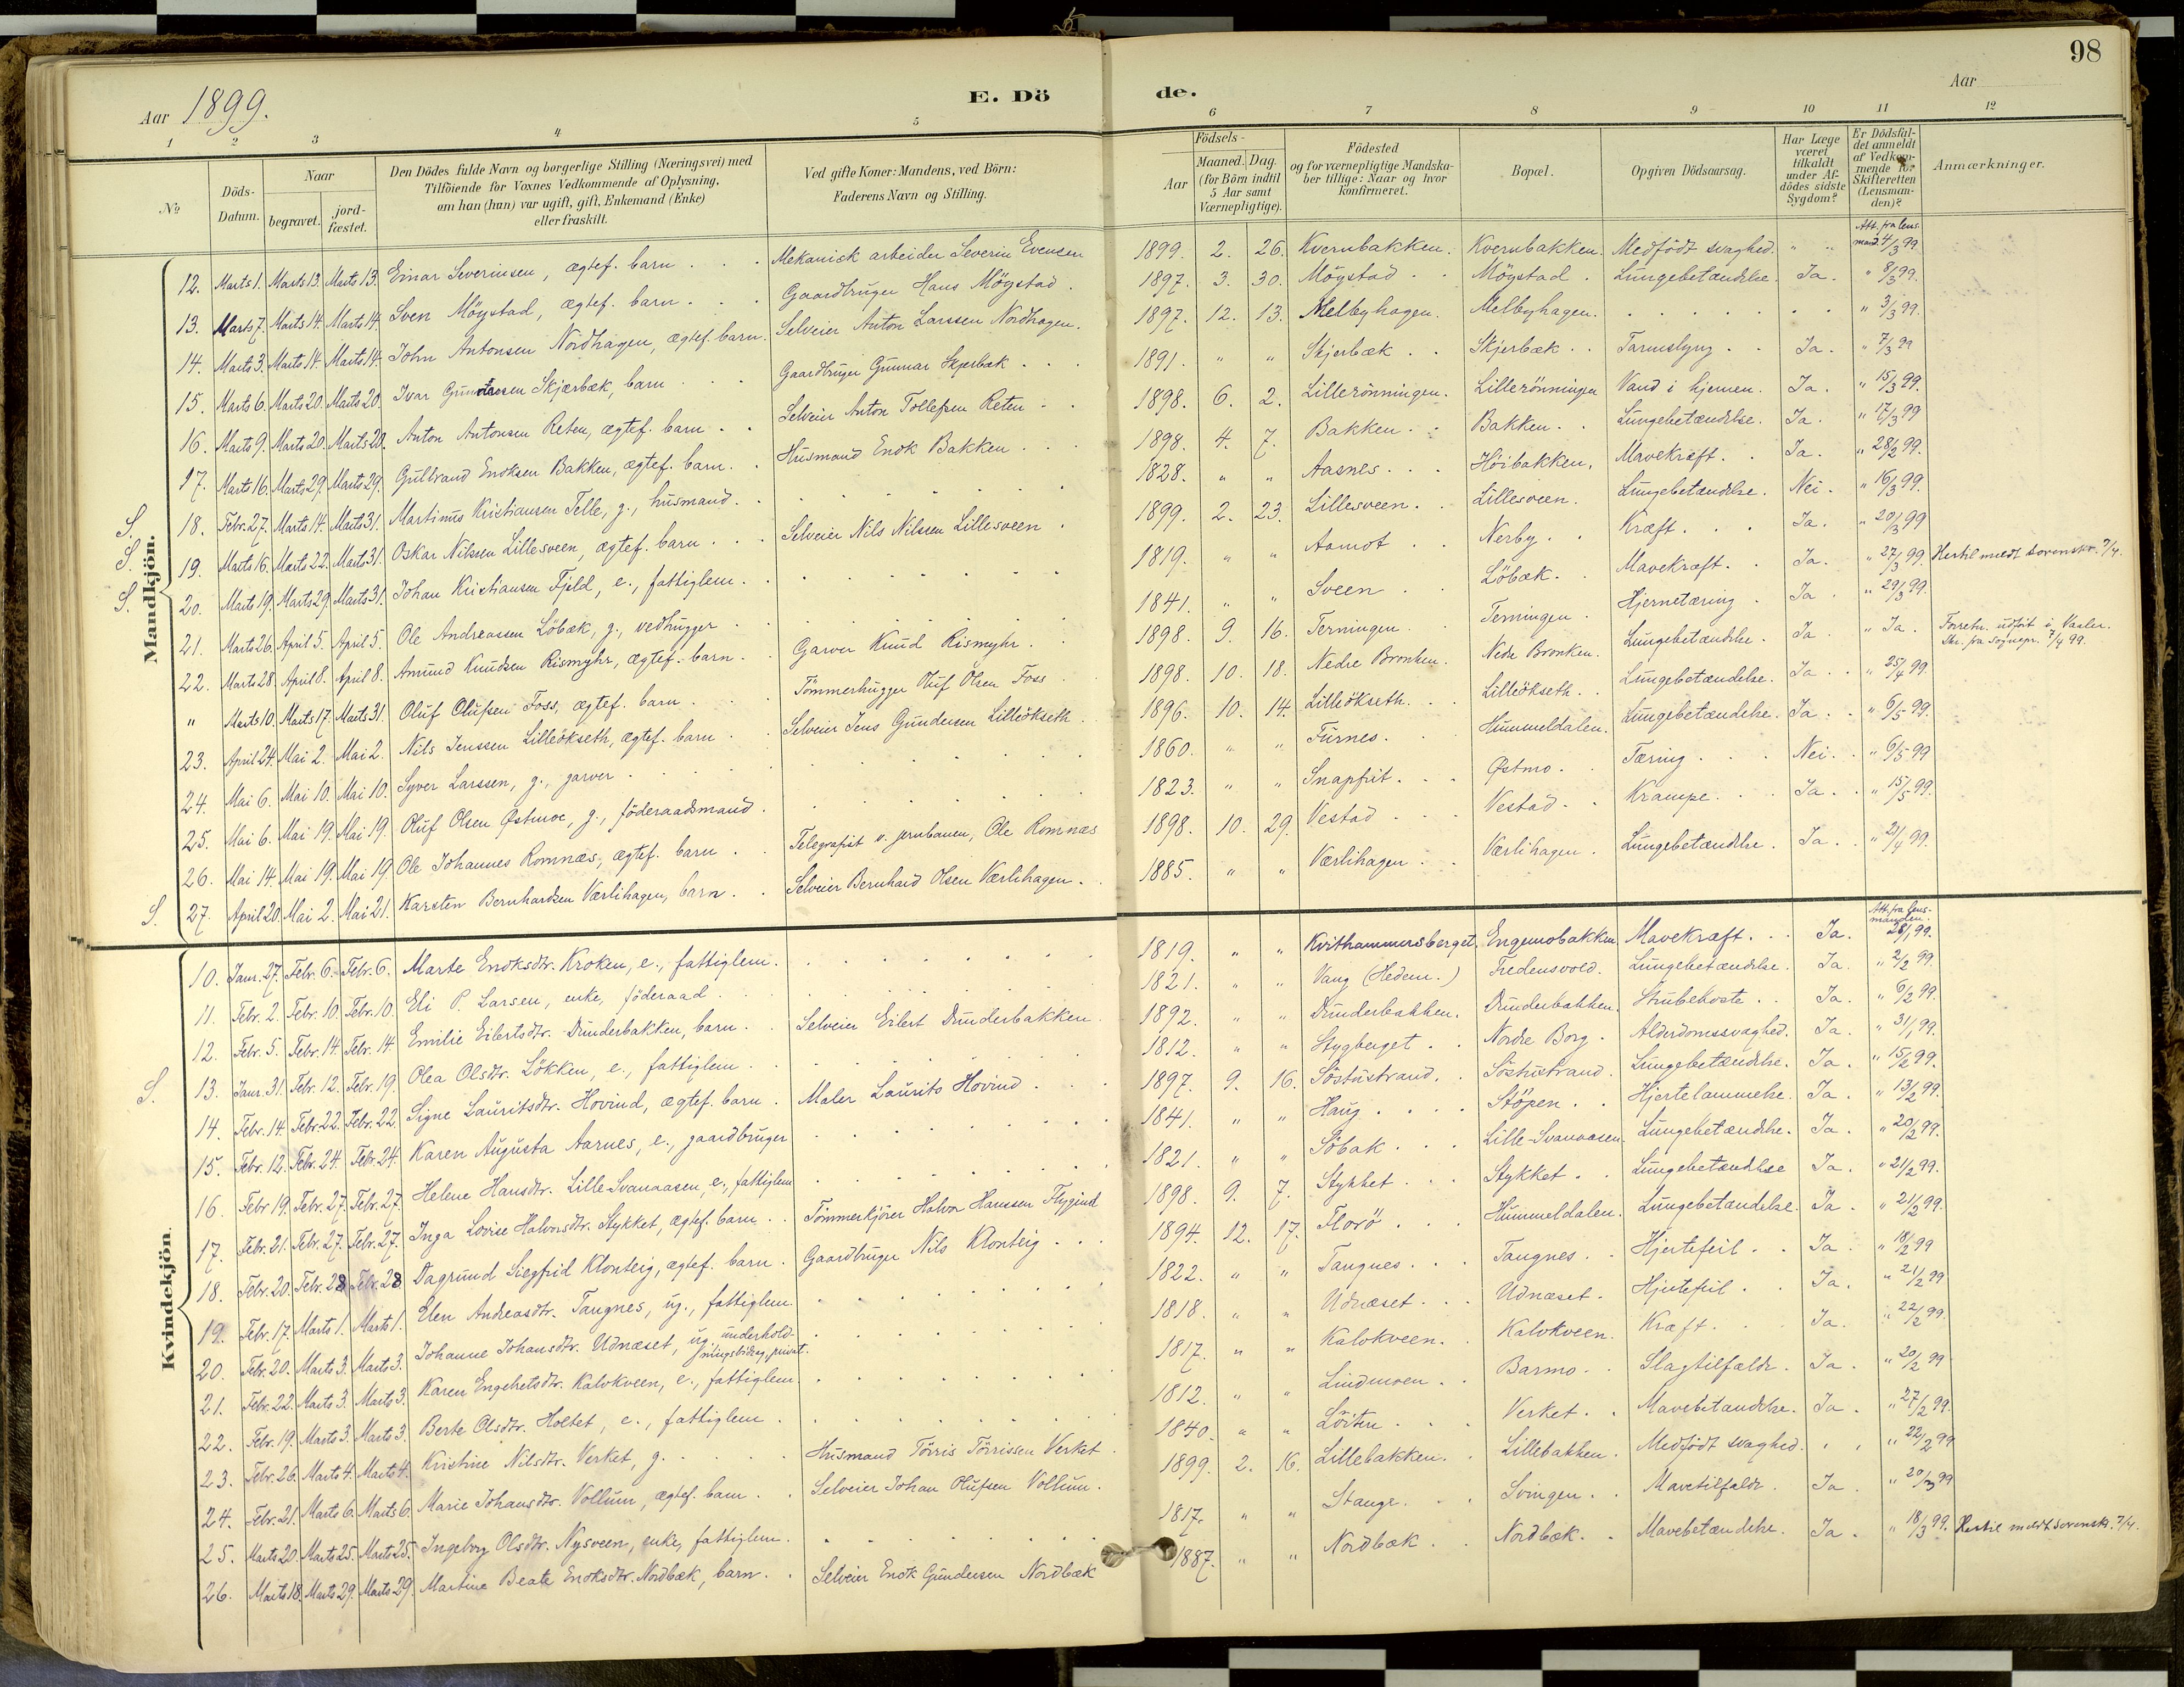 98
Aar 1899.
E. Dö de.
Aar
1 2 3 4 5 6 7 8 9 10 11 12
No
Döds-Datum.
Naar
begravet.
jord-fæstet.
Den Dödes fulde Navn og borgerlige Stilling (Næringsvei) med
Tilföiende for Voxnes Vedkommende af Oplysning,
om han (hun) var ugift, gift, Enkemand (Enke)
eller fraskilt.
Ved gifte Koner: Mandens, ved Börn:
Faderens Navn og Stilling.
Födsels-
Aar
Maaned. Dag.
(for Börn indtil
5 Aar samt
Værnepligtige).
Födested
og for værnepligtige Mandska-
ber tillige: Naar og hvor
konfirmeret.
Bopæl.
Opgiven Dödsaarsag.
Har Læge
været
tilkaldt
under Af-
dödes sidste
Sygdom?
Er Dödsfal-
det anmeldt
af Vedkom-
mende for
Skifteretten
(Lensman-
den)?
Anmærkninger.
Mandkjön.
Att. fra lens-
mand.
12. Marts 1. Marts 13. Marts 13. Einar Severinsen, ægtef. barn . . . Mekanisk arbeider Severin Evensen 1899. 2. 26. Kvernbakken. Kvernbakken. Medfödt svaghed. " " 4/3 99.
13. Marts 7. Marts 14. Marts 14. Sven Möystad, ægtef. barn . . . Gaardbruger Hans Möystad. 1897. 3. 30. Möystad . . Möystad . Lungebetændelse. Ja. " 8/3 99.
14. Marts 3. Marts 14. Marts 14. John Antonsen Nordhagen, ægtef. barn. Selveier Anton Larssen Nordhagen. 1897. 12. 13. Melbyhagen. Melbyhagen. . . . . . " 3/3 99.
15. Marts 6. Marts 20. Marts 20. Ivar Gunnarsen Skjærbæk, barn . . . Gaardbruger Gunnar Skjerbæk . . . 1891. " " Skjerbæk . . Skjerbæk . . Tarmslyng . . Ja. " 7/3 99
16. Marts 9. Marts 20. Marts 20. Anton Antonsen Reten, ægtef. barn . . Selveier Anton Tollefsen Reten . . 1898. 6. 2. Lillerönningen. Lillerönningen Vand i hjernen. Ja. " 15/3 99.
17. Marts 16. Marts 29. Marts 29. Gulbrand Enoksen Bakken, ægtef. barn. . Husmand Enok Bakken . . 1898. 4. 7. Bakken . . Bakken . . Lungebetændelse. Ja. " 17/3 99
S. 18. Febr. 27. Marts 14. Marts 31. Martinus Kristiansen Telle, g., husmand . . 1828. " " Aasnes . . . Höibakken. Mavekræft . . Ja. " 28/2 99.
S. 19. Marts 16. Marts 22. Marts 31. Oskar Nilsen Lillesveen, ægtef. barn . . . Selveier Nils Nilssen Lillesveen . 1899. 2. 23. Lillesveen. . Lillesveen. Lungebetændelse. Nei. " 16/3 99.
S. 20. Marts 19. Marts 29. Marts 31. Johan Kristiansen Fjeld, e., fattiglem . . 1819. " " Aamot . . Nerby. . Kræft . . . Ja. " 20/3 99
21. Marts 26. April 5. April 5. Ole Andreassen Löbæk, g., vedhugger . . 1841. " " Sveen . . Löbæk . . Mavekræft . . Ja. " 27/3 99. Hertil meldt sorenskr. 7/4.
22. Marts 28. April 8. April 8. Amund Knudsen Rismyhr, ægtef. barn . . Garver Knud Rismyhr . 1898. 9. 16. Terningen . Terningen . Hjernetæring . Ja. " 29/3 99.
" Marts 10. Marts 17. Marts 31 Oluf Olufsen Foss, ægtef. barn . . . Tömmerhugger Oluf Olsen Foss . 1898. 10. 18. Nedre Bronken. Nedre Bronken. Lungebetændelse. Ja. " Ja. Forretn. udfört i Vaaler. Skr. fra Sognepr. 7/4 99.
23. April 24. Mai 2. Mai 2. Nils Jenssen Lilleökseth, ægtef. barn . . Selveier Jens Gundersen Lilleökseth . 1896. 10. 14. Lilleökseth . . Lilleökseth . Lungebetændelse. Ja. " 25/4 99.
24. Mai 6. Mai 10. Mai 10. Syver Larssen, g., garver . . . 1860. " " Furnes . . Hummeldalen. Lungebetændelse. Ja. . " 6/5 99.
25. Mai 6. Mai 19. Mai 19. Oluf Olsen Østmoe, g., föderaadsmand . 1823. " " Snapfrit . . . Østmo . . Tæring . . . Nei. . " 6/5 99
26. Mai 14. Mai 19. Mai 19 Ole Johannes Romnæs, ægtef. barn . . Telegrafist v. jernbanen, Ole Romnæs 1898. 10. 29. Vestad . . . Vestad . . Krampe. . . Ja. . " 15/5 99.
S. 27. April 20. Mai 2. Mai 21. Karsten Bernhardsen Værlihagen, barn . . Selveier Bernhard Olsen Værlihagen . . 1885. " " Værlihagen . . Værlihagen . Lungebetændelse. Ja. . " 21/4 99.
Kvindekjön.
Att. fra lens-
manden.
10. Janr. 27. Febr. 6. Febr. 6. Marte Enoksdtr. Kroken, e., fattiglem. . 1819. " " Kvithammersberget. Engemobakken. Mavekræft . . Ja. 28/1 99.
11. Febr. 2. Febr. 10. Febr. 10. Eli P. Larsen, enke, föderaad . . 1821. " " Vang (Hedem.) Fredensvold. Lungebetændelse. Ja. " 2/2 99.
12. Febr. 5. Febr. 14. Febr. 14. Emilie Eilertsdtr. Dunderbakken, barn . . Selveier Eilert Dunderbakken 1892. " " Dunderbakken. Dunderbakken. Strubehoste . . Ja. " 6/2 99.
S. 13. Janr. 31. Febr. 12. Febr. 19. Olea Olsdtr. Lökken, e., fattiglem . . 1812. " " Stygberget . . Nordre Borg . Alderdomssvaghed. Ja. " 31/1 99.
14. Febr. 14. Febr. 22. Febr. 22. Signe Lauritsdtr. Hovind, ægtef. barn . Maler Laurits Hovind . . . 1897. 9. 16. Söstustrand. . Söstustrand . Lungebetændelse. Ja. " 15/2 99.
15. Febr. 12. Febr. 24. Febr. 24. Karen Augusta Aarnes, e., gaardbruger 1841. " " Haug . . . . Stöpen . . Hjertelammelse. Ja. " 13/2 99.
16. Febr. 19. Febr. 27. Febr. 27. Helene Hansdtr. Lille-Svanaasen, e., fattiglem 1821. " " Söbak . . . Lille-Svanaasen. Lungebetændelse. Ja. " 20/2 99.
17. Febr. 21. Febr. 27. Febr. 27. Inga Lovise Halvorsdtr. Stykket, ægtef. barn . . Tömmerkjörer Halvor Hanssen Flygind 1898. 9. 7. Stykket . . . Stykket . . Lungebetændelse Ja. " 21/2 99.
18. Febr. 20. Febr. 28 Febr. 28 Dagrund Siegfrid Klonteig, ægtef. barn . Gaardbruger Nils Klonteig . . . 1894. 12. 17. Florö . . . Hummeldalen. Lungebetændelse. Ja. " 21/2 99.
19. Febr. 17. Marts 1. Marts 1. Elen Andreasdtr. Tangnes, ug., fattiglem. . 1822. " " Tangnes . . . Tangnes . . Hjertefeil . . Ja. " 18/2 99
20. Febr. 20. Marts 3. Marts 3. Johanne Johansdtr. Udnæset, ug. underhold-
ningsbidrag, privat. 1818. " " Udnæset . . . Udnæset . Hjertefeil . . Ja. " 21/2 99
21. Febr. 22. Marts 3. Marts 3. Karen Engebretsdtr. Kalvkveen, e., fattiglem. 1817. " " Kalvkveen. . Kalvkveen. Kræft . . . Ja. " 22/2 99.
22. Febr. 19. Marts 3. Marts 3. Berte Olsdtr. Holtet, e., fattiglem . . 1812. " " Lindmoen . . Barmo . . Slagtilfælde . Ja. " 20/2 99
23. Febr. 26. Marts 4. Marts 4. Kristine Nilsdtr. Verket, g. . . . Husmand Törris Törrissen Verket . 1840. " " Löiten . . . Verket . . Mavebetændelse. Ja. " 27/2 99.
24. Febr. 21. Marts 6. Marts 6. Marie Johansdtr. Vollum, ægtef. barn . . Selveier Johan Olufsen Vollum . 1899. 2. 16. Lillebakken. . Lillebakken . Medfödt svaghed. . . " 22/2 99
25. Marts 20. Marts 25. Marts 25. Ingeborg Olsdtr. Nysveen, enke, fattiglem. . 1817. " " Stange . . . Svingen . . Mavetilfælde . Ja. " 20/3 99
26. Marts 18. Marts 29. Marts 29. Martine Beate Enoksdtr. Nordbæk, barn . . Selveier Enok Gundersen Nordbæk 1887. " " Nordbæk . . Nordbæk . . Mavebetændelse. Ja. " 18/3 99. Hertil meldt sorenskr. 7/4.